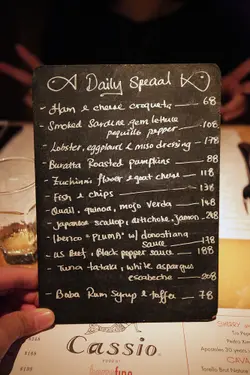 Daily Special
- Ham & cheese croquets 68
- Smoked Sardine gem lettuce
piquillo pepper 108
- Lobster, eggplant & miso dressing 178
- Buratta Roasted pumpkins 88
- Zucchini's flower & goat cheese 118
- Fish & chips 138
- Quail, quinoa, mojo verda 148
- Japanese scallop, artichoke, Jamon 248
- Iberico "PLUMA" w/ donostiana
sauce 178
- US Beef, Black pepper sauce 188
- Tuna tataki, white asparagus
escabeche 208
- Baba Rum Syrup & toffee 78
Cassio